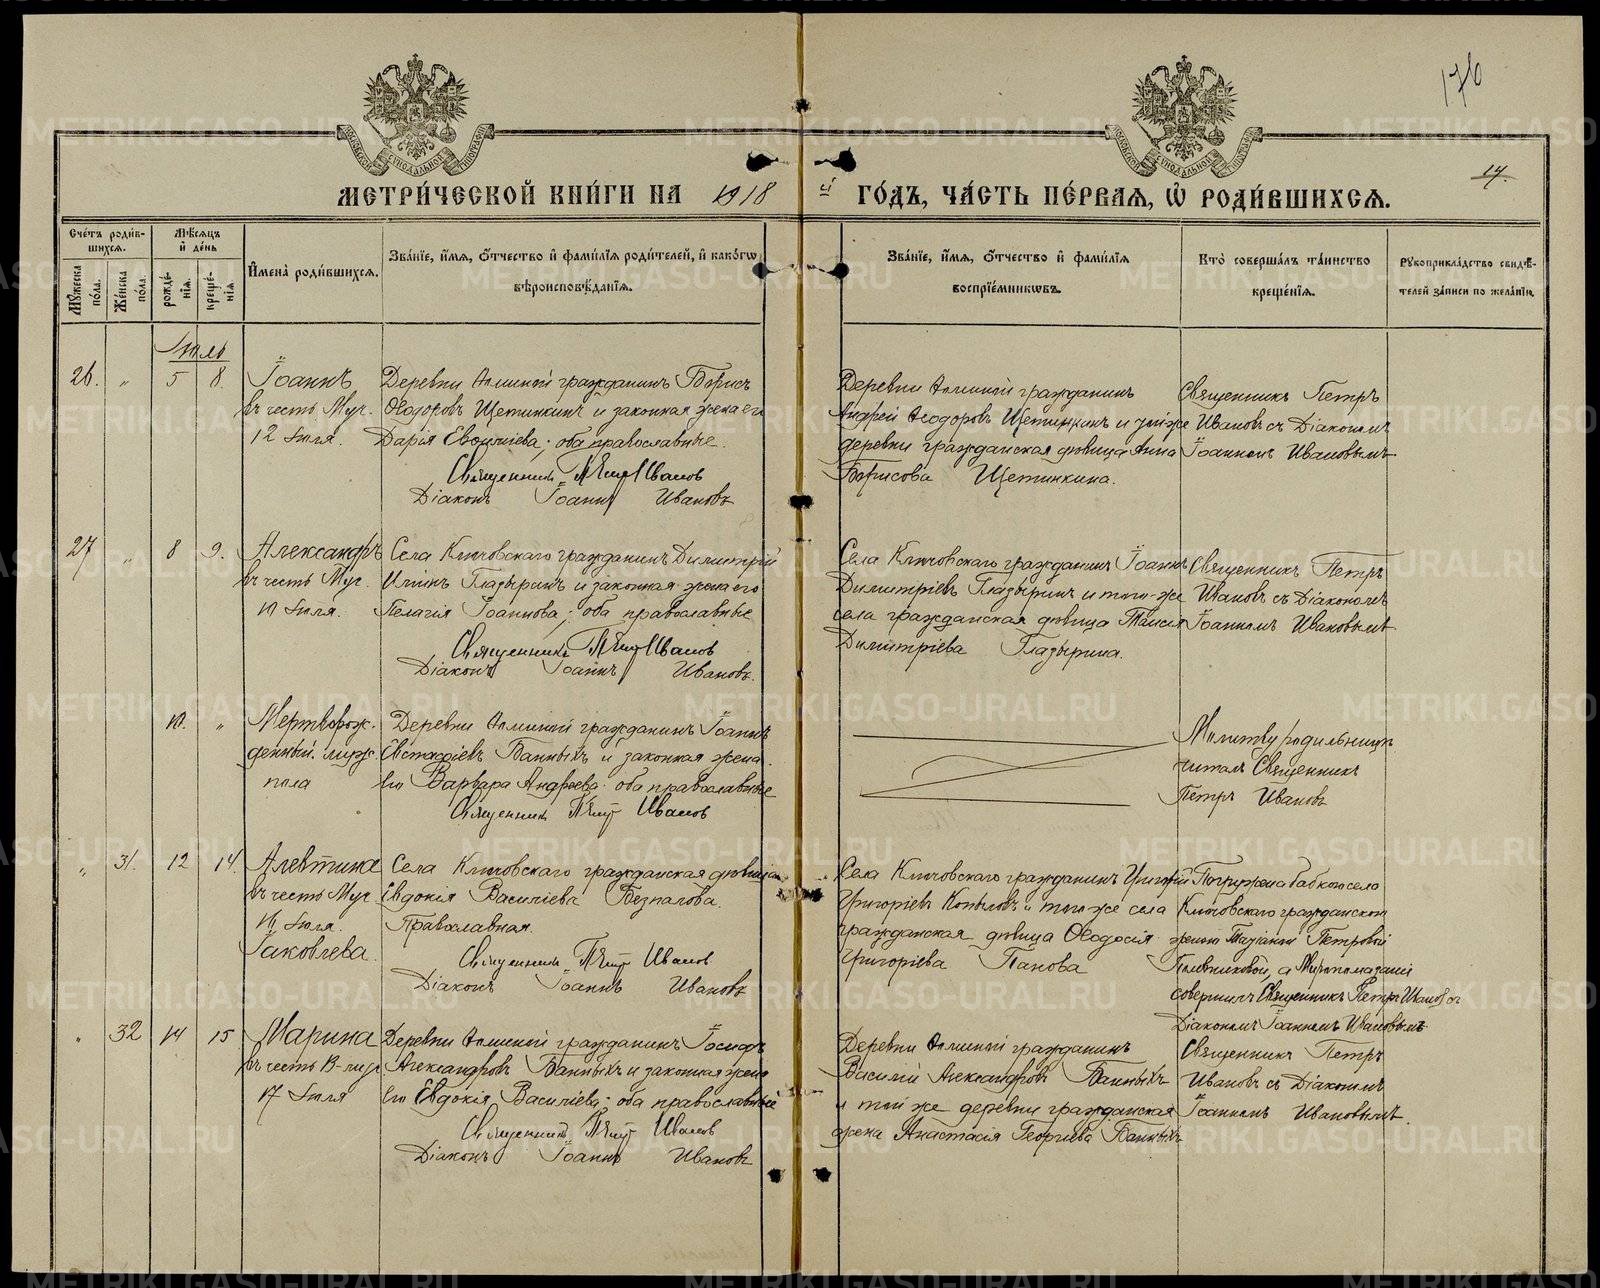 176
14.
МЕТРИ́ЧЕСКОЙ КНИ́ГИ НА 1918 й ГО́ДЪ, ЧА́СТЬ ПЕ́РВАѦ, Ѡ҆ РОДИ́ВШИХСѦ.
Сче́тъ роди́в-
шихсѧ.
Мꙋжеска по́ла.
Же́нска по́ла.
Мѣ́сѧцъ и҆ де́нь
рожде́-нїѧ.
креще́-нїѧ.
И҆мена̀ роди́вшихсѧ.
Зва́нїе, и҆́мѧ, ѻ҆́тчество и҆ фами́лїѧ роди́телей, и҆ како́гѡ
вѣроисповѣ́данїѧ.
Зва́нїе, и҆́мѧ, ѻ҆́тчество и҆ фами́лїѧ
воспрїе́мникѡвъ.
Кто̀ соверша́лъ та́инство
креще́нїѧ.
Рꙋкоприкла́дство свидѣ́-
телей за́писи по жела́нїю.
Іюль
26. " 5 8.
Іоаннъ
въ честь Муч.
12 Іюля.
Деревни гражданинъ Борисъ
Ѳеодоровъ Щетинкинъ и законная жена его
Дарія ; оба православные.
Священникъ Петръ Ивановъ
Діаконъ Іоаннъ Ивановъ
Деревни гражданинъ
Андрей Ѳеодоровъ Щетинкинъ и той же
деревни гражданская дѣвица Анна
Борисова Щетинкина.
Священникъ Петръ
Ивановъ съ Діакономъ
Іоанномъ Ивановымъ
27 " 8 9.
Александръ
въ честь Муч.
10 Іюля.
Села Ключовскаго гражданинъ Димитрій
Ильинъ Глазыринъ и законная жена его
Пелагія Іоаннова; оба православные
Священникъ Петръ Ивановъ
Діаконъ Іоаннъ Ивановъ.
Села Ключовскаго гражданинъ Іоаннъ
Димитріевъ Глазыринъ и того-же
села гражданская дѣвица Таисія
Димитріева Глазырина.
Священникъ Петръ
Ивановъ съ Діакономъ
Іоанномъ Ивановымъ
10. "
Мертворож-
денный муж.
пола
Деревни гражданинъ Іоаннъ
Евстафіевъ Банныхъ и законная жена
его Варвара Андреева; оба православные
Священникъ Петръ Ивановъ
Молитву родильницѣ
читалъ Священникъ
Петръ Ивановъ
" 31. 12 14.
Алевтина
въ честь Муч.
16 Іюля.
Іаковлева.
Села Ключовскаго гражданская дѣвица
Евдокія Василіева Безпалова.
Православная.
Священникъ Петръ Ивановъ
Діаконъ Іоаннъ Ивановъ
Села Ключовскаго гражданинъ Григорій
Григоріевъ Копыловъ и того же села
гражданская дѣвица Ѳеодосія
Григоріева Панова
Погружена бабкою села
Ключовскаго гражданскою
женою Татіаною Петровой
а Мѵропомазаніе
совершилъ Священникъ Петръ Ивановъ съ
Діакономъ Іоанномъ Ивановымъ
" 32 14 15
Марина
въ честь В-муч.
17 Іюля
Деревни гражданинъ Іосифъ
Александровъ Банныхъ и законная жена
его Евдокія Василіева; оба православные
Священникъ Петръ Ивановъ
Діаконъ Іоаннъ Ивановъ
Деревни гражданинъ
Василій Александровъ Банныхъ
и той же деревни гражданская
жена Анастасія Георгіева Банныхъ
Священникъ Петръ
Ивановъ съ Діакономъ
Іоанномъ Ивановымъ.
METRIKI.GASO-URAL.RU